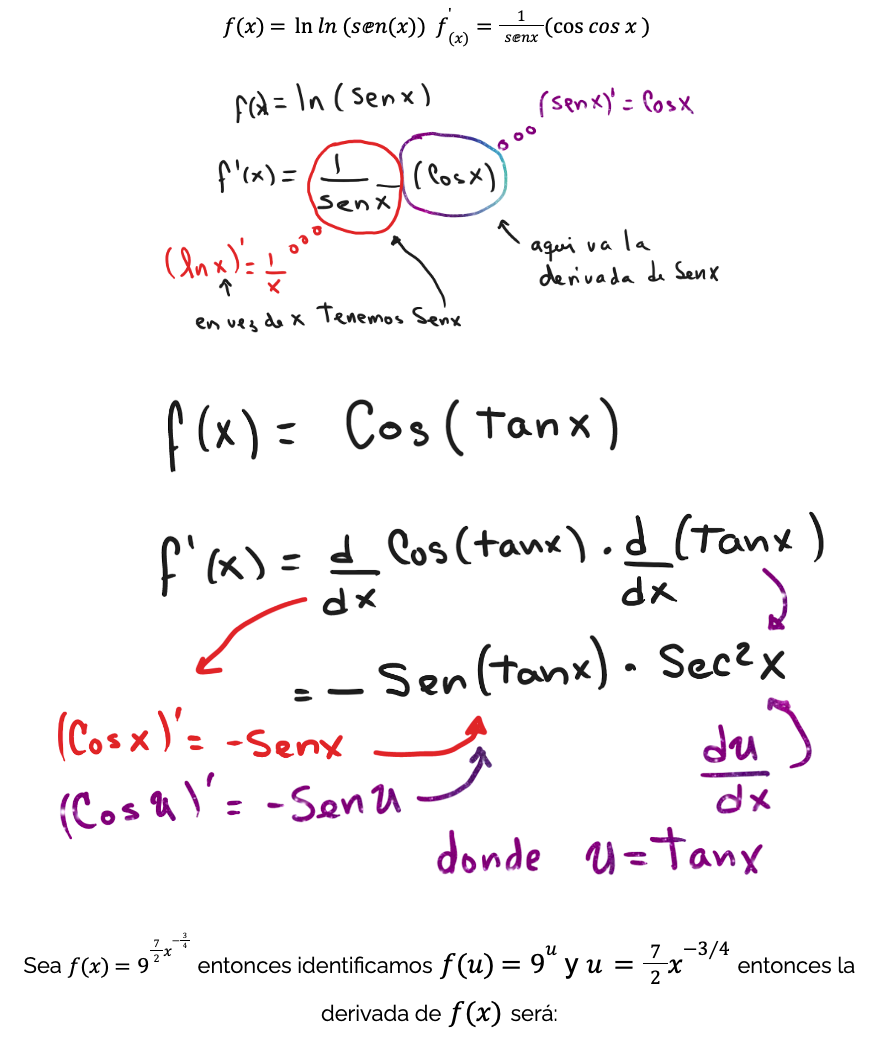 f(x) = ln ln (sen(x)) f'(x) = 1/senx (cos cos x )
f(x) = ln (Senx)
(senx)' = Cosx
f'(x) = 1/senx (Cosx)
(lnx)' = 1/x
aqui va la
derivada de Senx
en vez de x Tenemos Senx
f(x) = Cos(Tanx)
f'(x) = d/dx Cos(tanx) · d/dx (Tanx)
= - Sen(tanx) · Sec²x
(Cosx)' = -Senx
du/dx
(Cos u)' = -Sen u
donde u = Tanx
Sea f(x) = 9^(7/2 x^(-3/4)) entonces identificamos f(u) = 9^u y u = 7/2 x^(-3/4) entonces la
derivada de f(x) será: